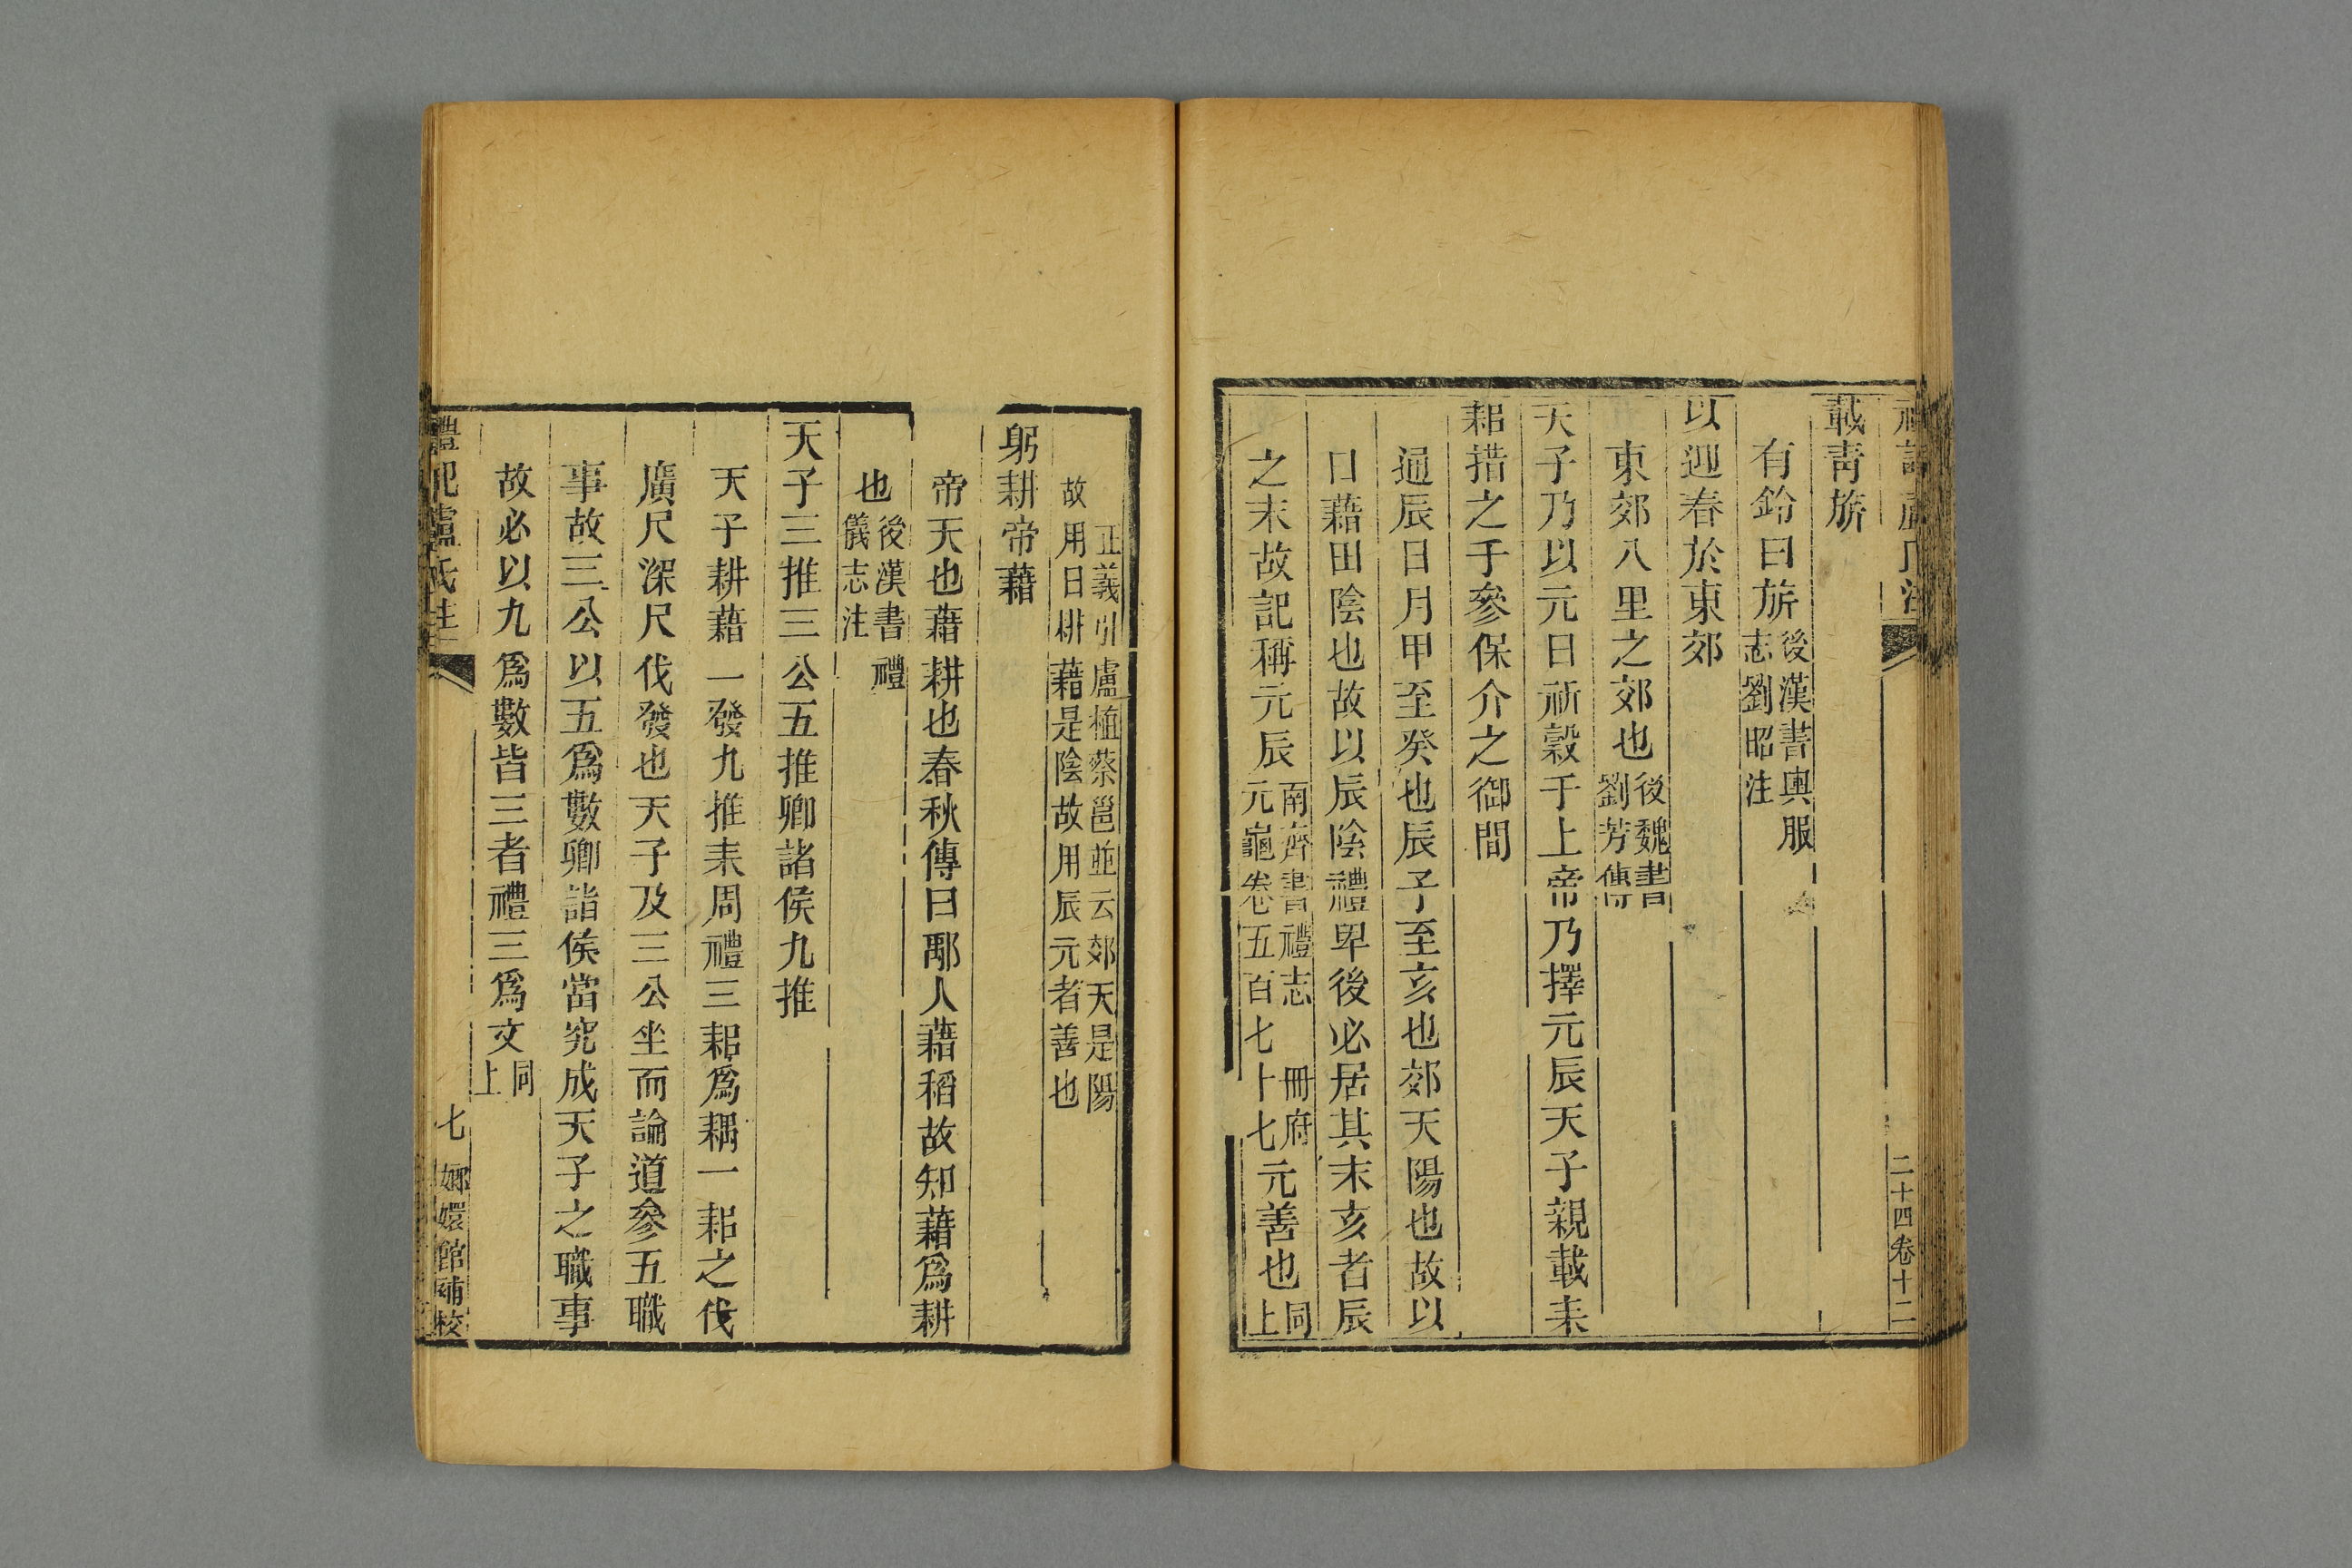 禮記盧氏注
二十四卷十二
載靑旂
有鈴曰旂後漢書輿服志劉昭注
以迎春於東郊
東郊八里之郊也後魏書劉芳傳
天子乃以元日祈穀于上帝乃擇元辰天子親載耒
耜措之于參保介之御間
通辰日月甲至癸也辰子至亥也郊天陽也故以
口藉田陰也故以辰陰禮卑後必居其末亥者辰
之末故記稱元辰南齊書禮志冊府元龜卷五百七十七元善也同上
正義引盧植蔡邕並云郊天是陽故用日耕藉是陰故用辰元者善也
躬耕帝藉
帝天也藉耕也春秋傳曰鄅人藉稻故知藉爲耕
也後漢書禮儀志注
天子三推三公五推卿諸侯九推
天子耕藉一發九推耒周禮三耜爲耦一耜之伐
廣尺深尺伐發也天子及三公坐而論道參五職
事故三公以五爲數卿諸侯當究成天子之職事
故必以九爲數皆三者禮三爲文同上
禮記盧氏注
七
嫏嬛館補校